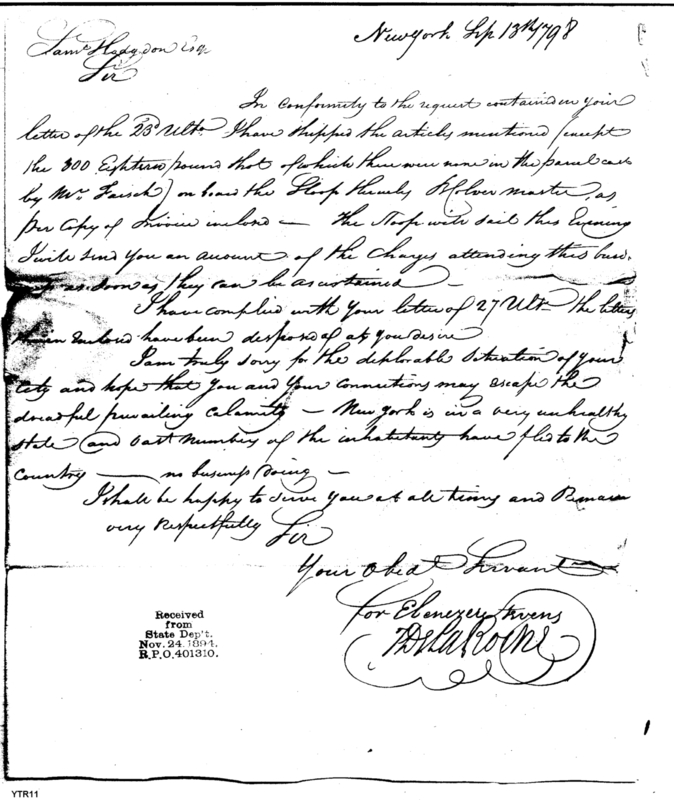 New York Sep 13th 1798
Saml Hodgdon Esqr
Sir
In conformity to the request contained in your
letter of the 23d Ulto I have shipped the articles mentioned (except
the 300 Eighteen pound shot of which there were none in the parcel
by Mr. Faesch) on board the Sloop Colver master, as
per Copy of Invoice inclosd — the Sloop will sail this Evening
I will send you an account of the Charges attending this busi-
ness as soon as they can be ascertained —
I have complied with your letter of 27 Ulto the letters
therein Enclosd have been disposed of as you desire
I am truly sorry for the deplorable Situation of your
City and hope that you and your connections may escape the
dreadful prevailing Calamity — New York is in a very unhealthy
state and vast Number of the inhabitants have fled to the
Country — no business doing —
I shall be happy to serve you at all times and Remain
very respectfully Sir
Your Obedt Servant
for Ebenezer Stevens
DeLaRoche
Received
from
State Dep't.
Nov. 24, 1894.
R.P.O. 401310.
YTR11